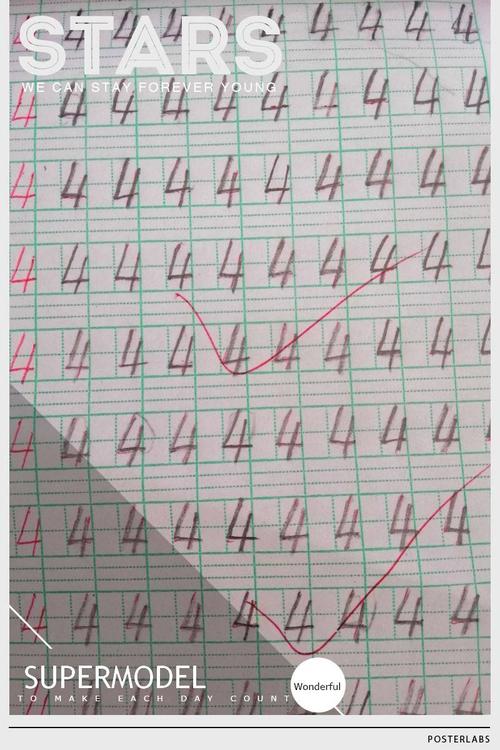 STARS
WE CAN STAY FOREVER YOUNG
4 4 4 4 4 4 4 4 4 4
4 4 4 4 4 4 4 4 4 4
4 4 4 4 4 4 4 4 4 4
4 4 4 4 4 4 4 4 4 4
4 4 4 4 4 4 4 4 4 4
4 4 4 4 4 4 4 4 4
4 4 4 4 4 4 4 4 4
4 4 4 4 4 4 4 4 4
SUPERMODEL
TO MAKE EACH DAY COUNT
Wonderful
POSTERLABS